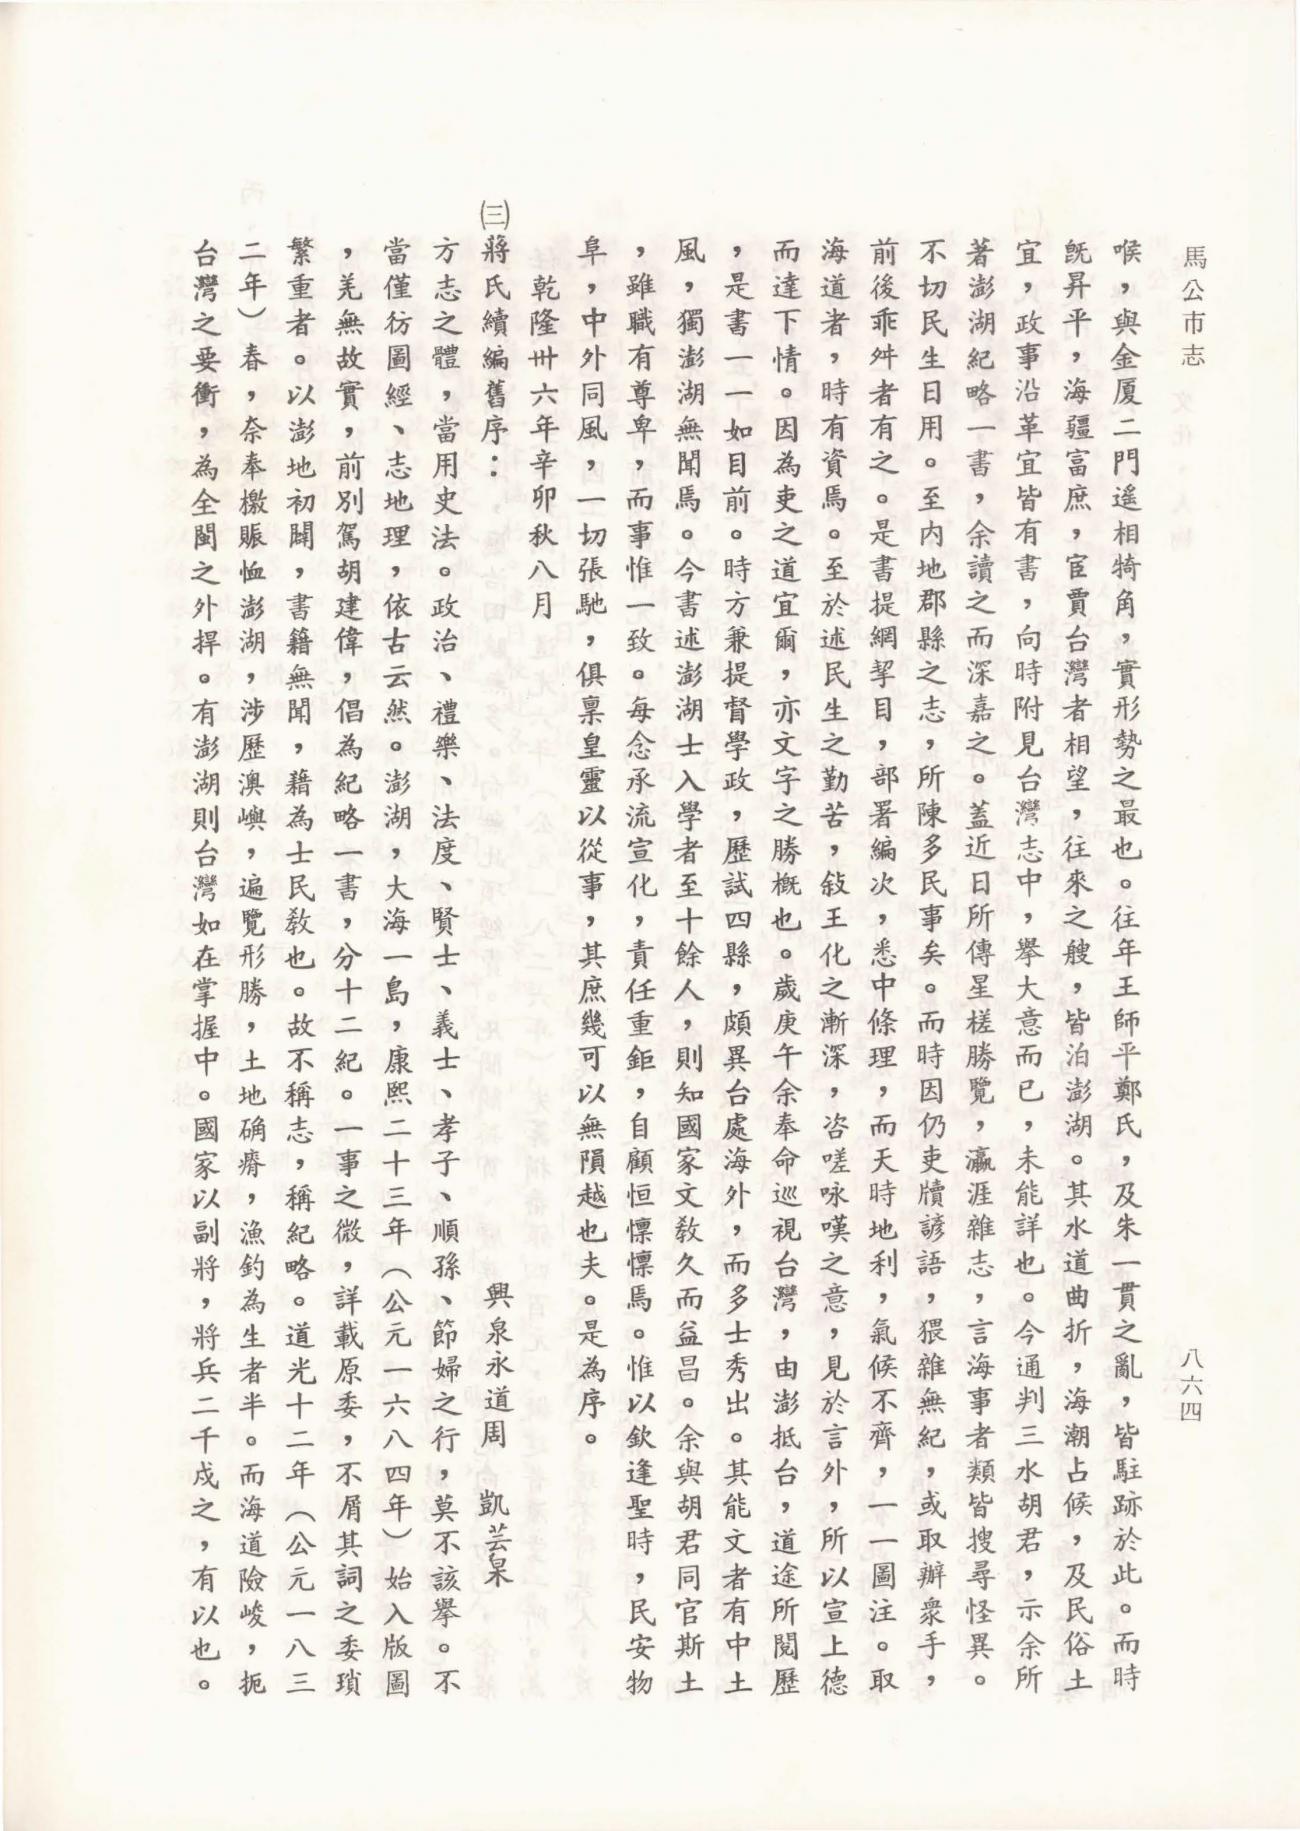 馬公市志
八六四
喉，與金厦二門遙相犄角，實形勢之最也。往年王師平鄭氏，及朱一貫之亂，皆駐跡於此。而時
旣昇平，海疆富庶，宦賈台灣者相望，往來之艘，皆泊澎湖。其水道曲折，海潮占候，及民俗土
宜，政事沿革宜皆有書，向時附見台灣志中，舉大意而已，未能詳也。今通判三水胡君，示余所
著澎湖紀略一書，余讀之而深嘉之。蓋近日所傳星槎勝覽，瀛涯雜志，言海事者類皆搜尋怪異。
不切民生日用。至內地郡縣之志，所陳多民事矣。而時因仍吏牘諺語，猥雜無紀，或取辦衆手，
前後乖舛者有之。是書提網挈目，部署編次，悉中條理，而天時地利，氣候不齊，一一圖注。取
海道者，時有資焉。至於述民生之勤苦，敍王化之漸深，咨嗟咏嘆之意，見於言外，所以宣上德
而達下情。因為吏之道宜爾，亦文字之勝概也。歲庚午余奉命巡視台灣，由澎抵台，道途所閱歷
，是書一五一如目前。時方兼提督學政，歷試四縣，頗異台處海外，而多士秀出。其能文者有中土
風，獨澎湖無聞焉。今書述澎湖士入學者至十餘人，則知國家文敎久而益昌。余與胡君同官斯土
，雖職有尊卑，而事惟一致。每念承流宣化，責任重鉅，自顧恒懍懍焉。惟以欽逢聖時，民安物
阜，中外同風，一切張馳，俱稟皇靈以從事，其庶幾可以無隕越也夫。是為序。
乾隆卅六年辛卯秋八月
㈢蔣氏續編舊序：
興泉永道周　凱芸臬
方志之體，當用史法。政治、禮樂、法度、賢士、義士、孝子、順孫、節婦之行，莫不該擧。不
當僅彷圖經、志地理，依古云然。澎湖，大海一島，康熙二十三年（公元一六八四年）始入版圖
，羌無故實，前別駕胡建偉，倡為紀略一書，分十二紀。一事之微，詳載原委，不屑其詞之委瑣
繁重者。以澎地初闢，書籍無聞，藉為士民敎也。故不稱志，稱紀略。道光十二年（公元一八三
二年）春，奈奉檄賑恤澎湖，涉歷澳嶼，遍覽形勝，土地确瘠，漁釣為生者半。而海道險峻，扼
台灣之要衝，為全閩之外捍。有澎湖則台灣如在掌握中。國家以副將，將兵二千戍之，有以也。